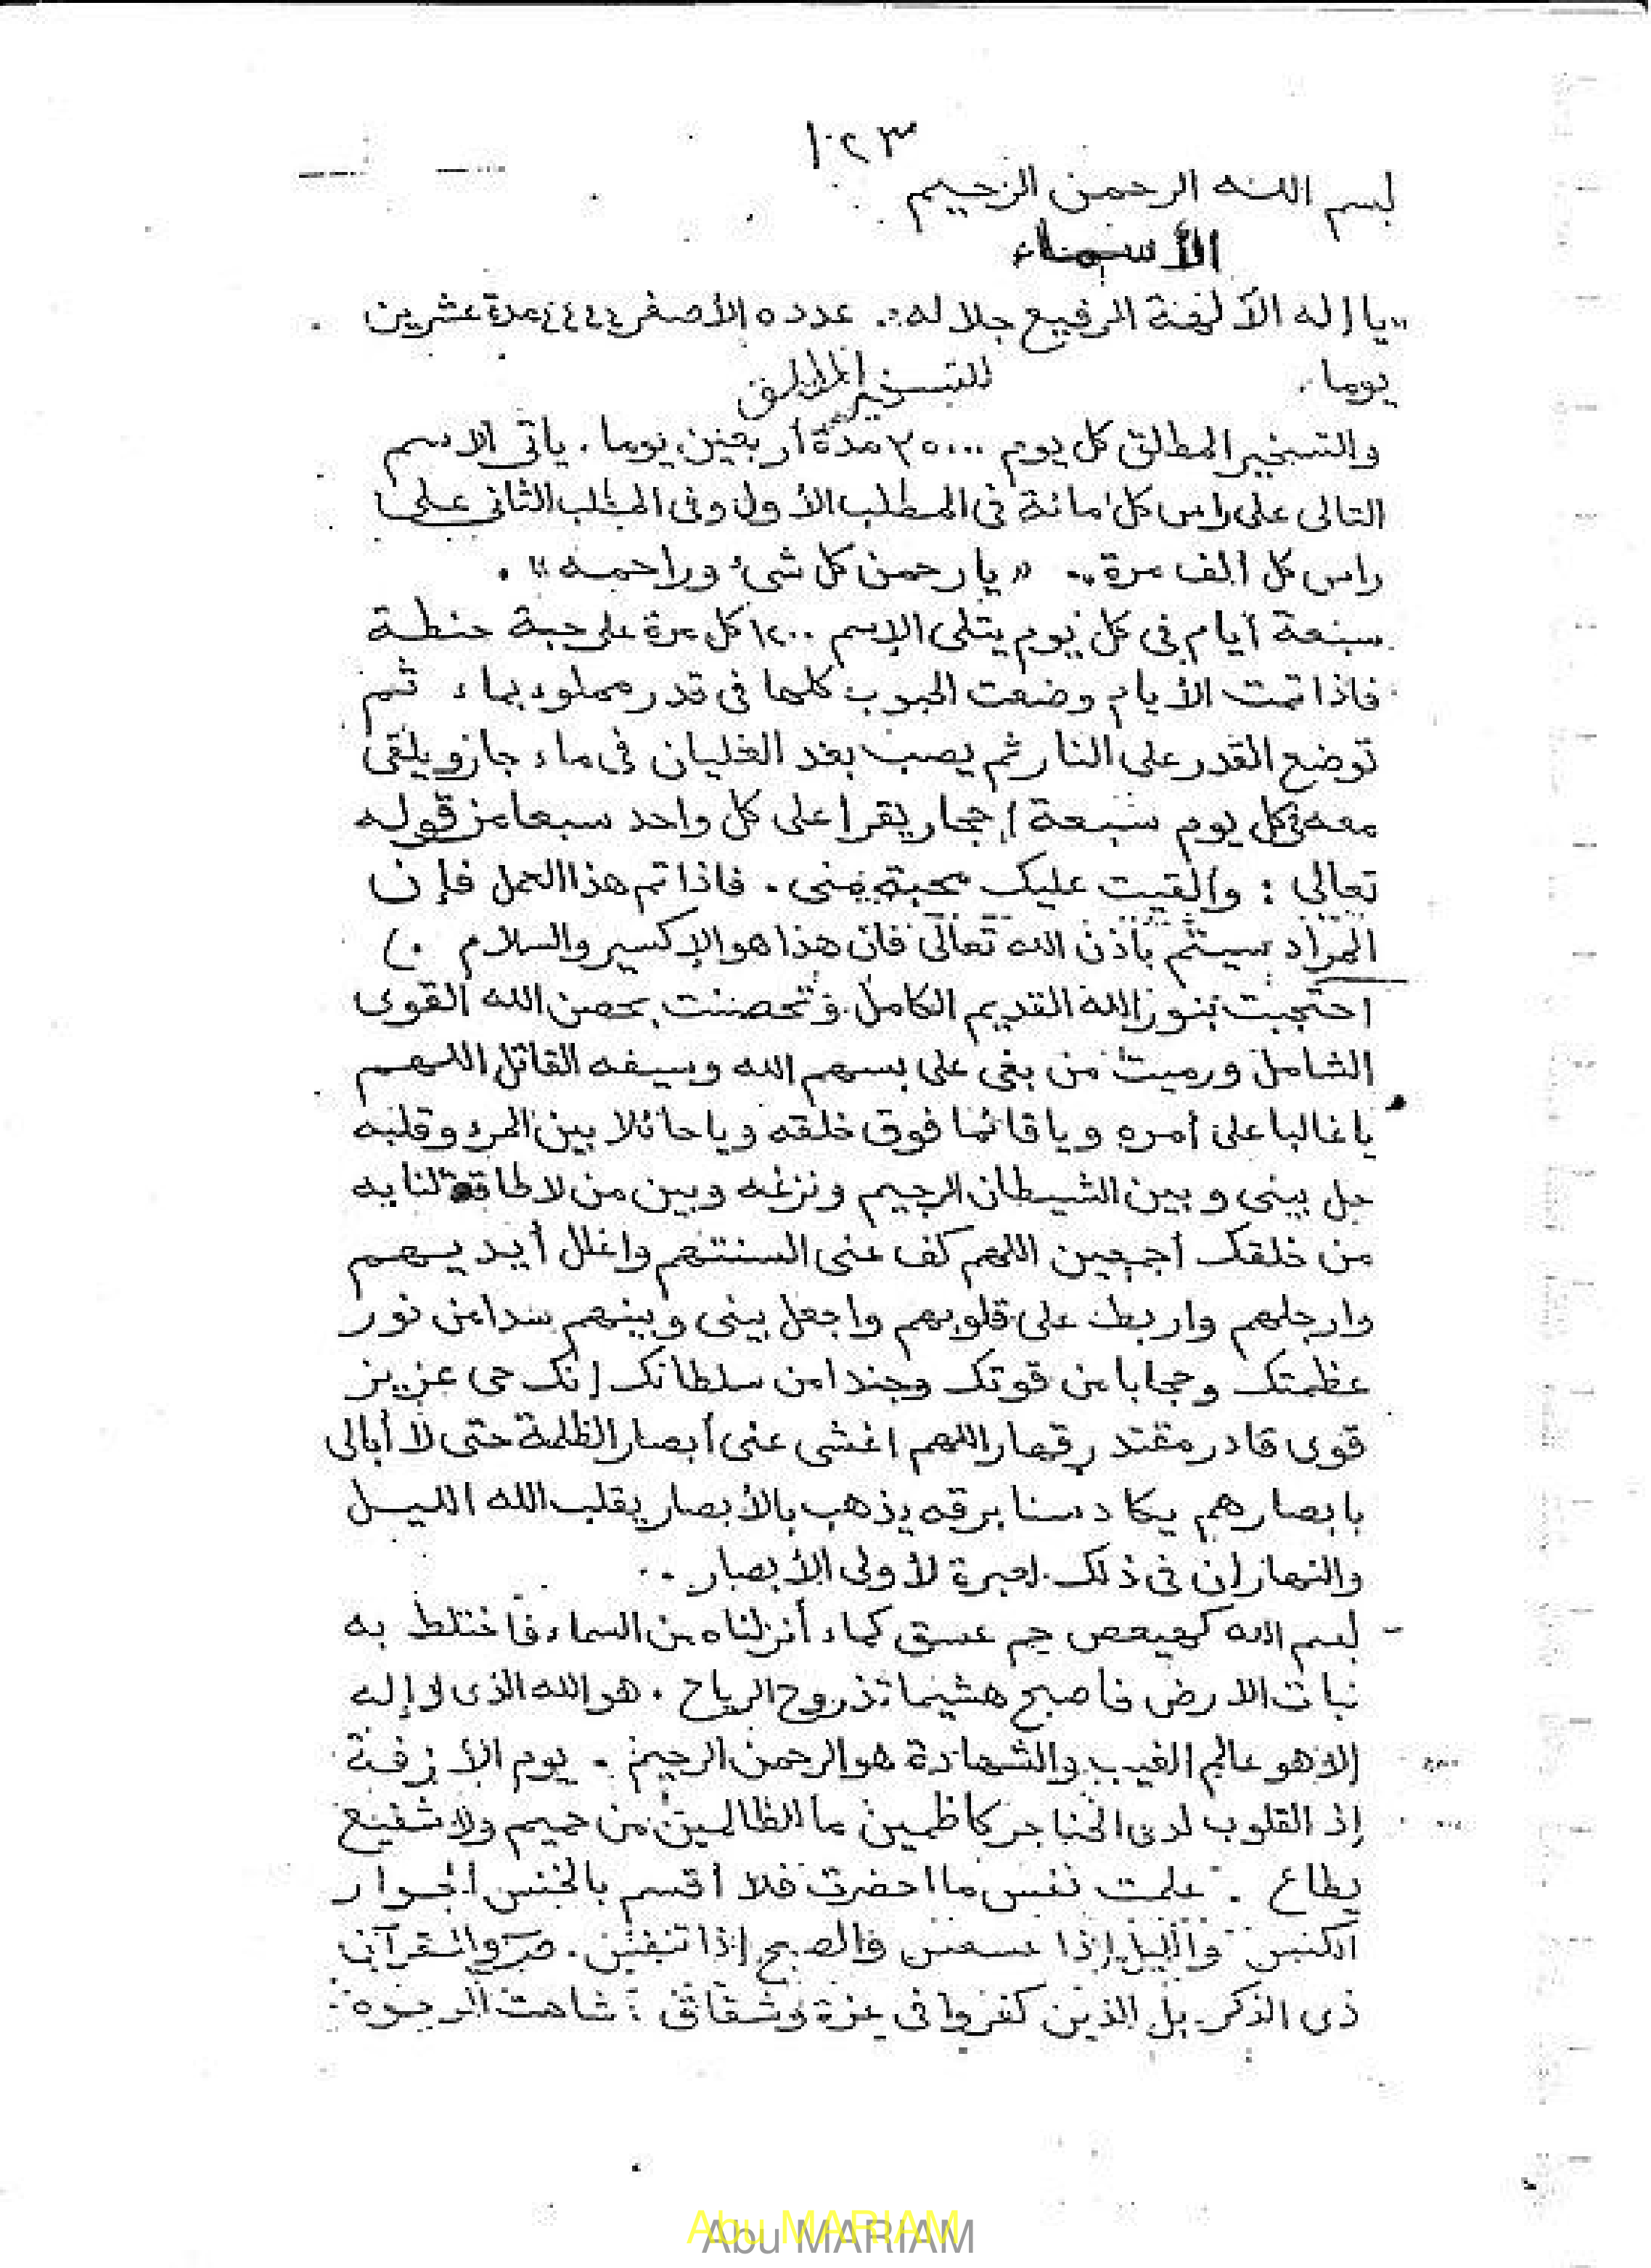 ١٠٢٣
بسم الله الرحمن الرحيم
الأسماء
"يا إله الآلهة الرفيع جلاله". عدده الأصغر ٤٤٤٤ مدة عشرين
يوما.
للتسخير المطلق
والتسخير المطلق كل يوم ٣٥٠٠٠ مدة أربعين يوما. ياتى الاسم
التالى على راس كل مائة فى المطلب الأول وفى المطلب الثانى على
راس كل الف مرة.. "يا رحمن كل شىء وراحمه".
سبعة أيام فى كل يوم يتلى الإسم ١٢٠٠ كل مرة على حبة حنطة
فاذا تمت الأيام وضعت الحبوب كلها فى قدر مملوء بماء ثم
توضع القدر على النار ثم يصب بعد الغليان فى ماء جار ويلقى
معه فى كل يوم سبعة احجار يقرا على كل واحد سبعا من قوله
تعالى : والقيت عليك محبة منى. فاذا تم هذا العمل فإن
المراد سيتم باذن الله تعالى فان هذا هو الإكسير والسلام .)
احتجبت بنور الله القديم الكامل وتحصنت بحصن الله القوى
الشامل ورميت من بغى على بسهم الله وسيفه القاتل اللهم
يا غالبا على أمره ويا قائما فوق خلقه ويا حائلا بين المرء وقلبه
حل بينى وبين الشيطان الرجيم ونزغه وبين من لا طاقة لنا به
من خلقك أجمعين اللهم كف عنى السنتهم واغلل أيديهم
وارجلهم واربط على قلوبهم واجعل بينى وبينهم سدا من نور
عظمتك وحجابا من قوتك وجندا من سلطانك إنك حى عزيز
قوى قادر مقتدر قهار اللهم اغشى عنى أبصار الظلمة حتى لا أبالى
بابصارهم يكاد سنا برقه يذهب بالأبصار يقلب الله الليل
والنهار إن فى ذلك لعبرة لأولى الأبصار..
- بسم الله كهيعص حم عسق كماء أنزلناه من السماء فاختلط به
نبات الارض فاصبح هشيما تذروه الرياح. هو الله الذى لا إله
إلا هو عالم الغيب والشهادة هو الرحمن الرحيم. يوم الأزفة
إذ القلوب لدى الحناجر كاظمين ما للظالمين من حميم ولا شفيع
يطاع. علمت نفس ما احضرت فلا أقسم بالخنس الجوار
الكنس والليل إذا عسعس والصبح إذا تنفس. ص والقرآن
ذى الذكر بل الذين كفروا فى عزة وشقاق : شاهت الوجوه
Abu MARIAM
Abu MARIAM